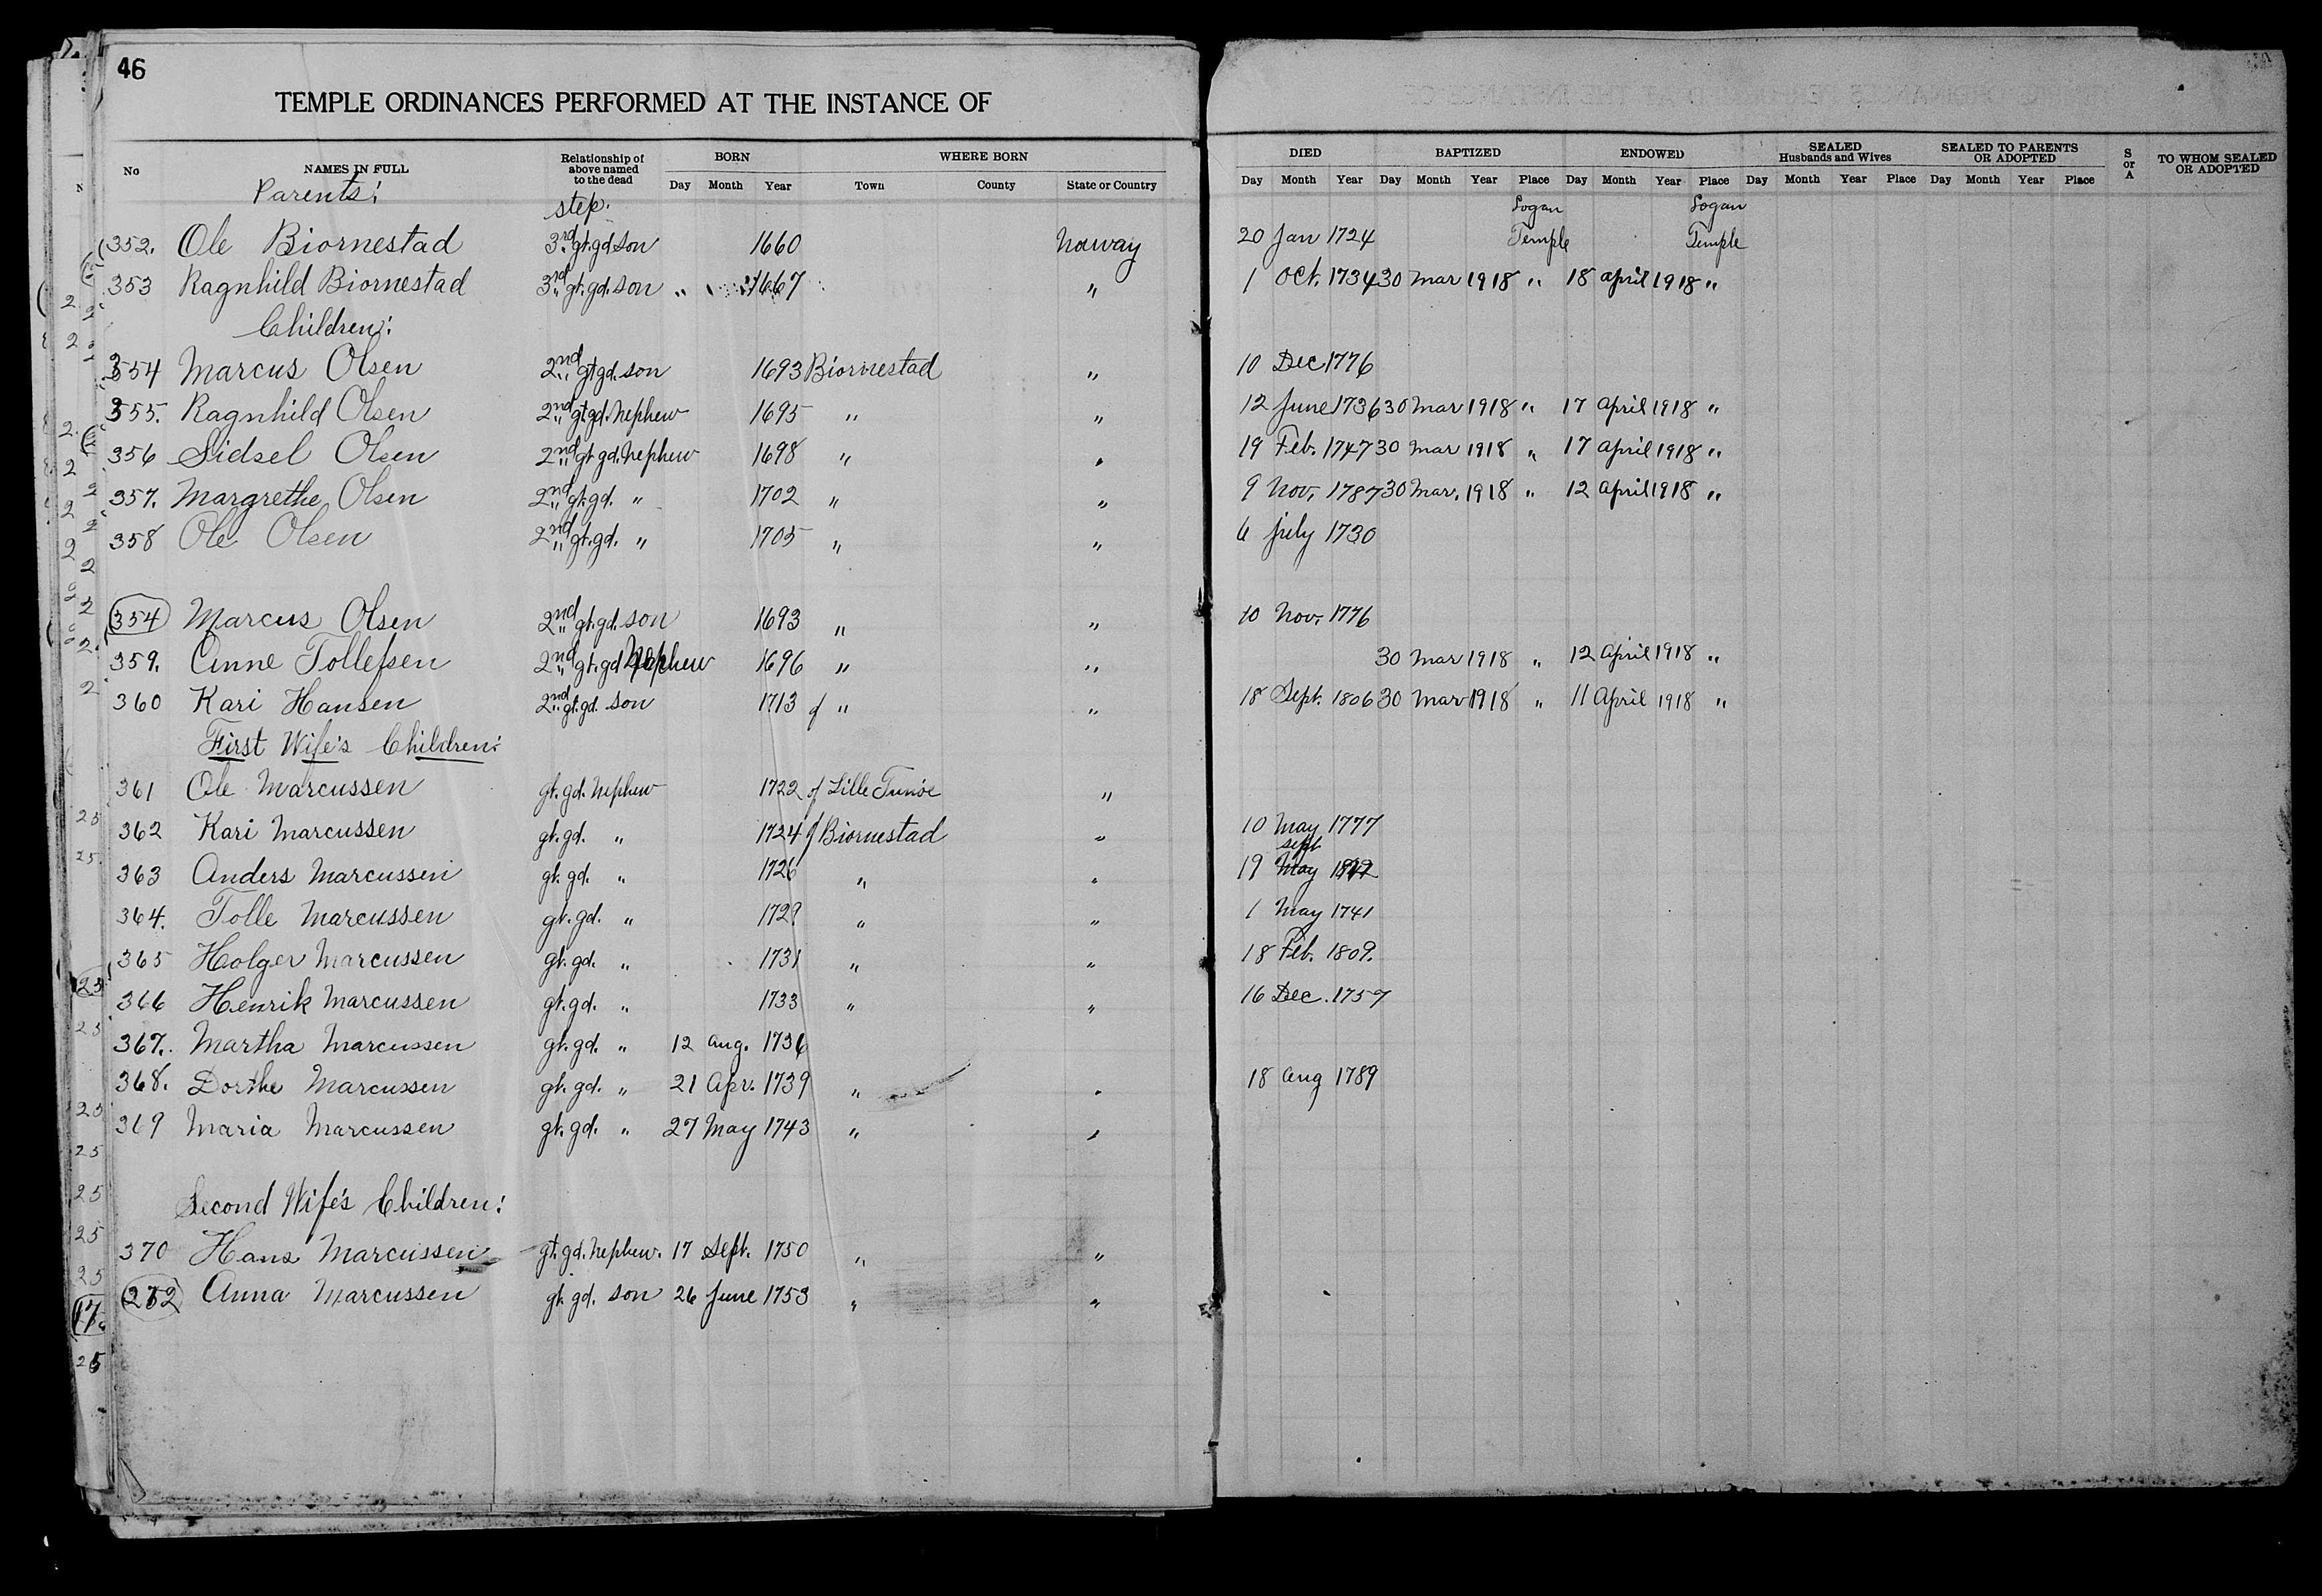 46
TEMPLE ORDINANCES PERFORMED AT THE INSTANCE OF
No NAMES IN FULL Relationship of above named to the dead BORN Day Month Year WHERE BORN Town County State or Country DIED Day Month Year BAPTIZED Day Month Year Place ENDOWED Day Month Year Place SEALED Husbands and Wives Day Month Year Place SEALED TO PARENTS OR ADOPTED Day Month Year Place S or A TO WHOM SEALED OR ADOPTED
Parents: step. Logan Logan
352. Ole Biornestad 3rd gt. gd son 1660 Norway 20 Jan 1724 Temple Temple
353 Ragnhild Biornestad 3rd gt. gd. son " 1667 " 1 Oct. 1734 30 Mar 1918 " 18 April 1918 "
Children:
354 Marcus Olsen 2nd gt gd. son 1693 Biornestad " 10 Dec 1776
355. Ragnhild Olsen 2nd gt gd. Nephew 1695 " " 12 June 1736 30 Mar 1918 " 17 April 1918 "
356 Sidsel Olsen 2nd gt. gd. Nephew 1698 " " 19 Feb. 1747 30 Mar 1918 " 17 April 1918 "
357. Margrethe Olsen 2nd gt. gd. " 1702 " " 9 Nov. 1787 30 Mar. 1918 " 12 April 1918 "
358 Ole Olsen 2nd gt. gd. " 1705 " " 6 July 1730
354 Marcus Olsen 2nd gt. gd. son 1693 " " 10 Nov. 1776
359. Anne Tollefsen 2nd gt. gd Nephew 1696 " " 30 Mar 1918 " 12 April 1918 "
360 Kari Hansen 2nd gt. gd. son 1713 of " " 18 Sept. 1806 30 Mar 1918 " 11 April 1918 "
First Wife's Children:
361 Ole Marcussen gt. gd. Nephew 1722 of Lille "
362 Kari Marcussen gt. gd. " 1724 of Biornestad " 10 May 1777
sept
363 Anders Marcussen gt. gd. " 1726 " " 19 May
364. Tolle Marcussen gt. gd. " 1729 " " 1 May 1741
365 Holger Marcussen gt. gd. " 1731 " " 18 Feb. 1809.
366 Henrik Marcussen gt. gd. " 1733 " " 16 Dec. 1757
367. Martha Marcussen gt. gd. " 12 Aug. 1736
368. Dorthe Marcussen gt. gd. " 21 Apr. 1739 " " 18 Aug 1789
369 Maria Marcussen gt. gd. " 27 May 1743 " "
Second Wife's Children:
370 Hans Marcussen gt. gd. Nephew. 17 Sept. 1750 " "
Anna Marcussen gt. gd. son 26 June 1753 " "